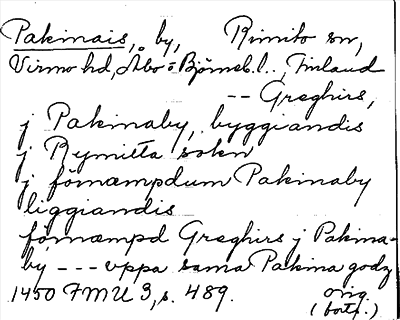 Pakinais, by, Rimito sn,
Virmo hd, Åbo = Björneb. l., Finland
-- Greghirs,
j Pakinaby, byggiandis
j Rymitta sokn
j förnæmpdum Pakinaby
liggiandis
förnæmpd Greghirs j Pakina-
by --- vppa sama Pakina godz
1450 FMU 3, s. 489. orig.
(fotp.)